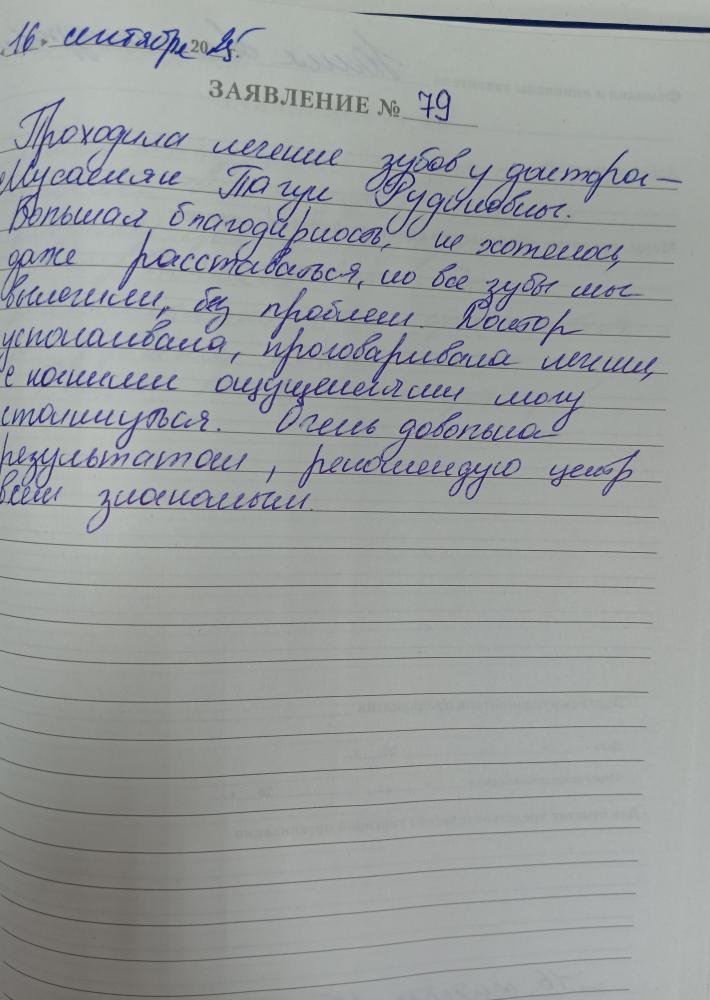 16 сентября 2025 г.
ЗАЯВЛЕНИЕ № 79
Проходила лечение зубов у доктора –
Мусаелян Тагуи Рудиковны.
Большая благодарность, не хотелось
даже расставаться, но все зубы мы
вылечили, без проблем. Доктор
успокаивала, проговаривала лечении,
с какими ощущениями могу
столкнуться. Очень довольна
результатом, рекомендую центр
всем знакомым.